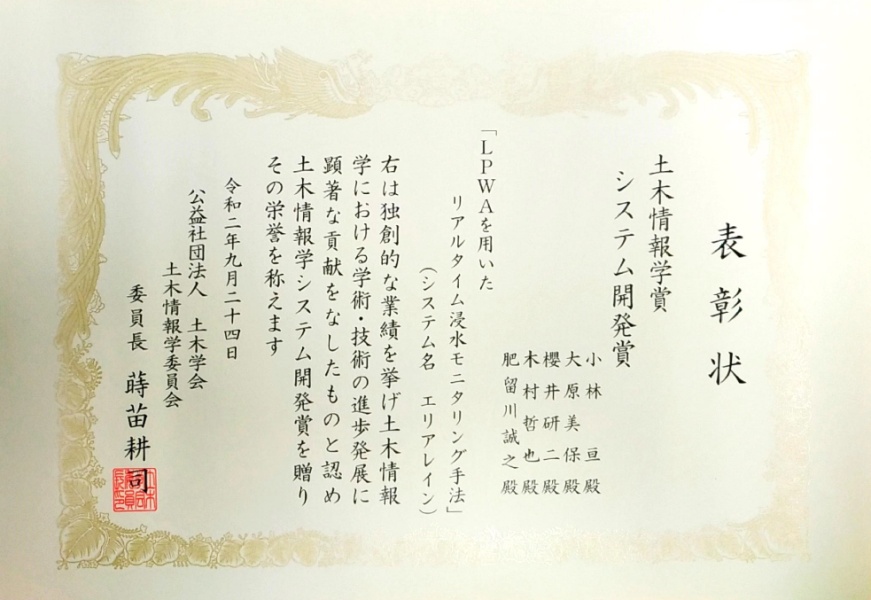 表彰状
土木情報学賞
システム開発賞
小林 亘 殿
大原美保 殿
櫻井研二 殿
木村哲也 殿
肥留川誠之 殿
「LPWAを用いた
リアルタイム浸水モニタリング手法」
（システム名　エリアレイン）
右は独創的な業績を挙げ土木情報
学における学術・技術の進歩発展に
顕著な貢献をなしたものと認め
土木情報学システム開発賞を贈り
その栄誉を称えます
令和二年九月二十四日
公益社団法人　土木学会
土木情報学委員会
委員長　蒔苗耕司